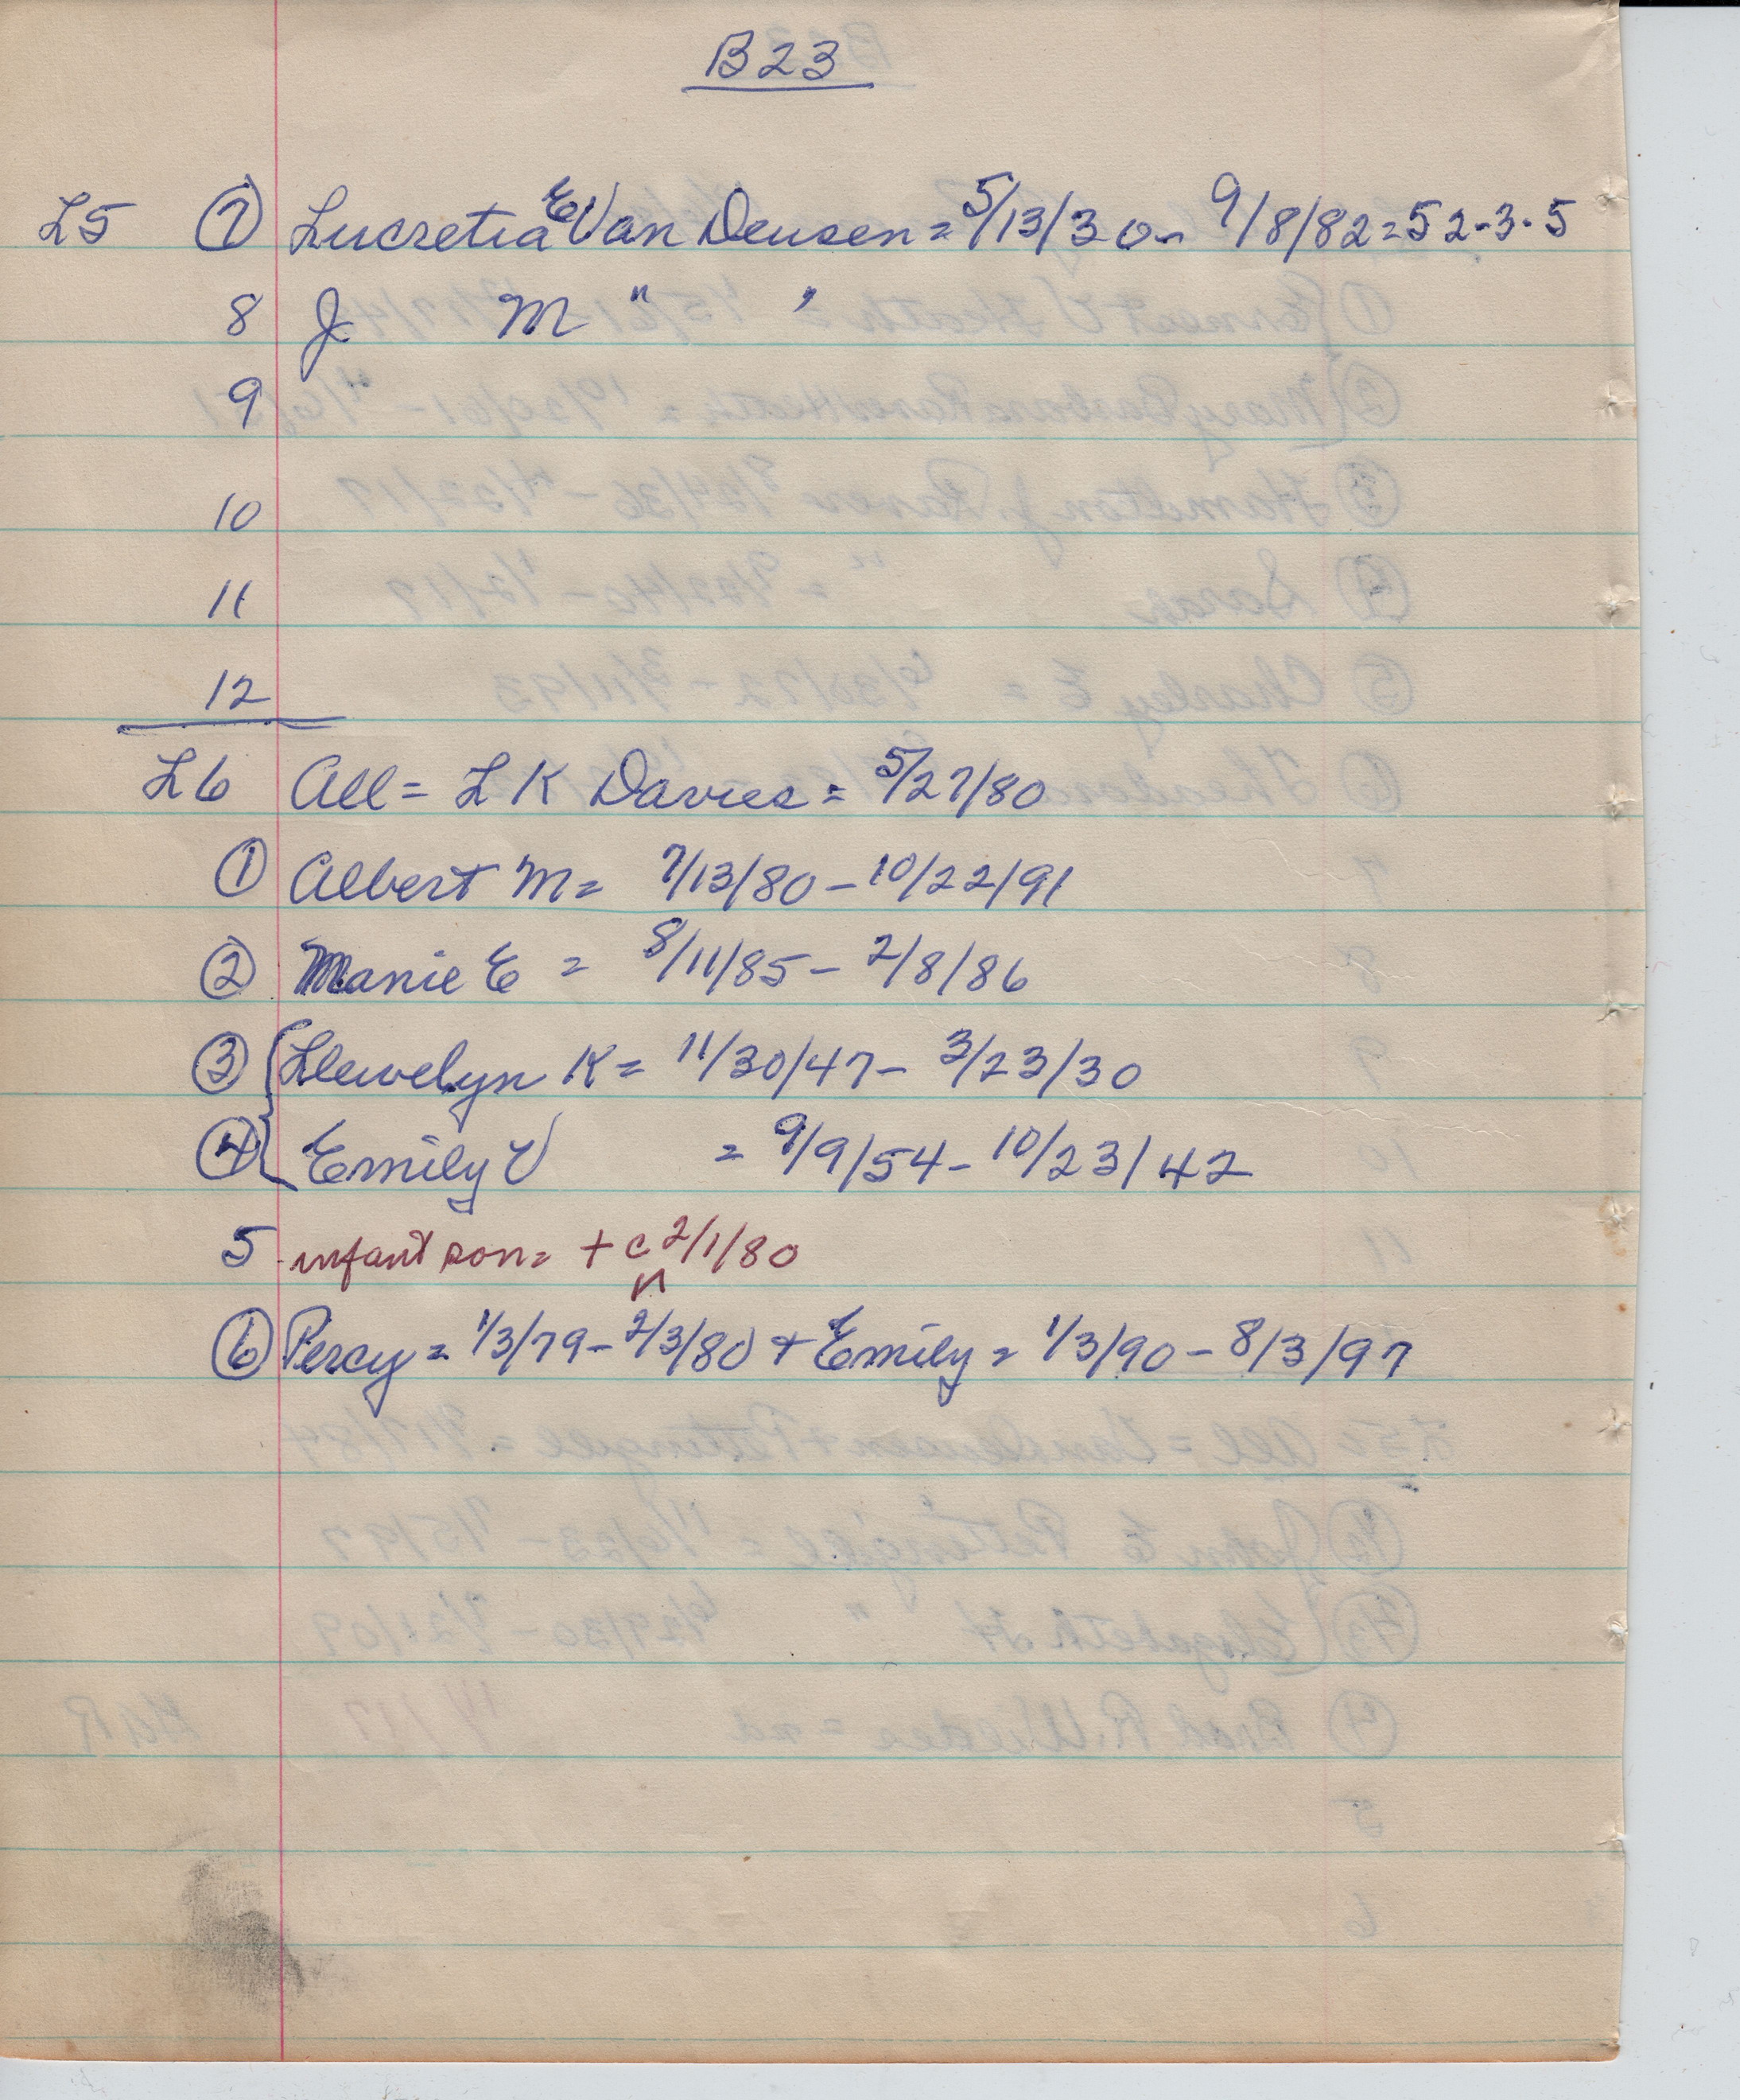 B23
L5 ⑦ Lucretia E Van Deusen = 5/13/30 - 9/8/82 = 52-3-5
8 J M " "
9
10
11
12
L6 All = L K Davies = 5/27/80
① Albert M = 7/13/80 - 10/22/91
② Manie E = 8/11/85 - 2/8/86
③ Llewelyn K = 11/30/47 - 3/23/30
④ Emily V = 9/9/54 - 10/23/42
5 infant son = + c 2/1/80
⑥ Percy = 1/3/79 - 2/3/80 + Emily = 1/3/90 - 8/3/97